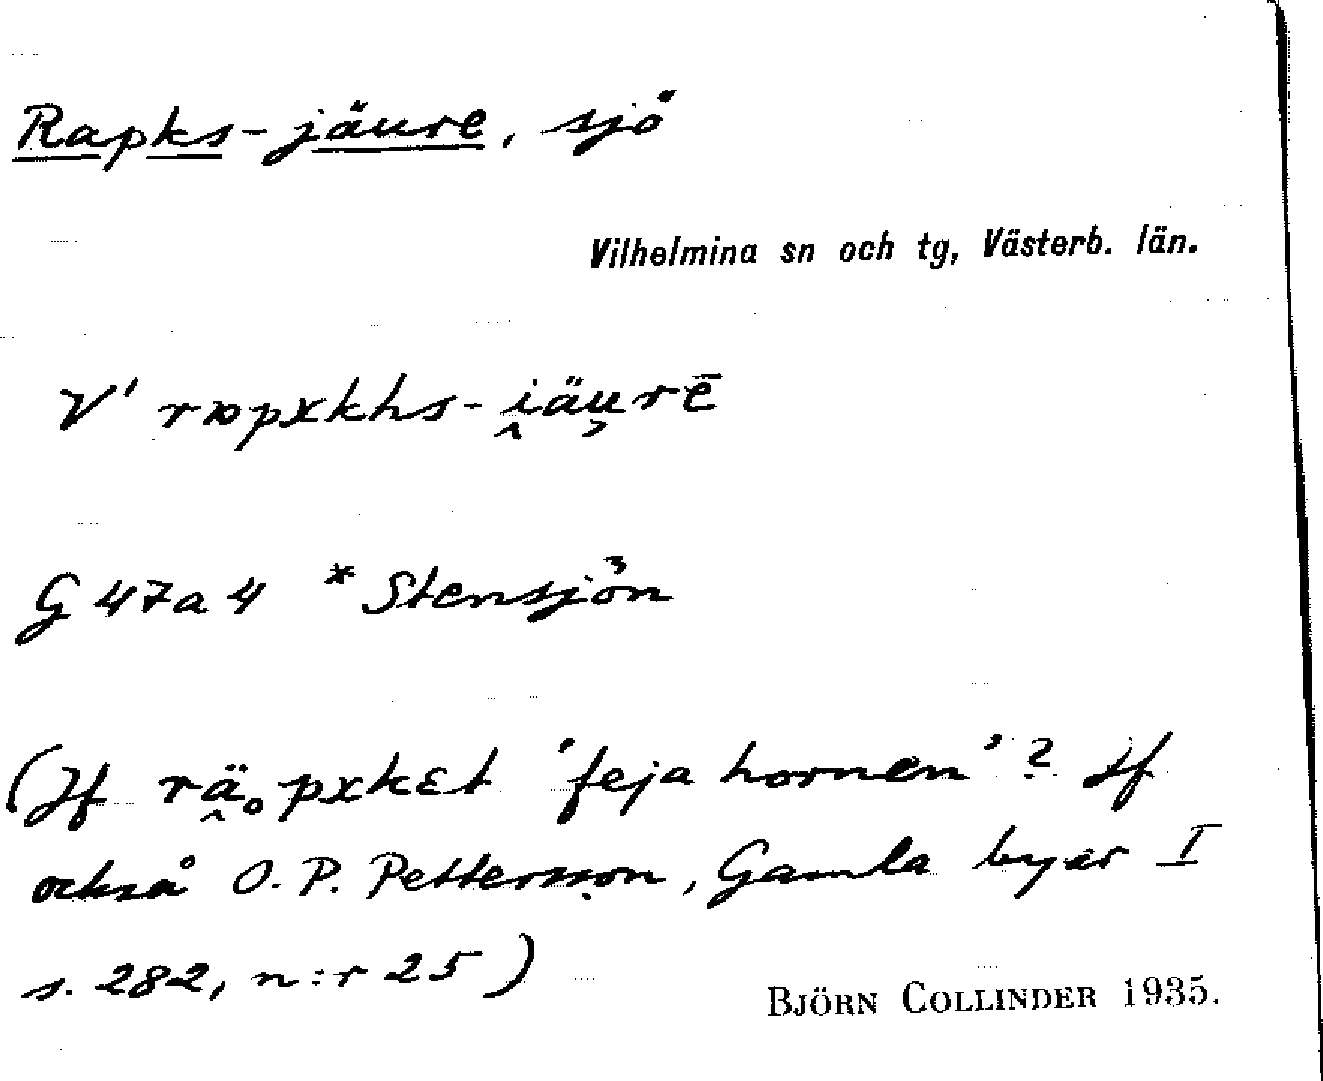 Rapks-jäure, sjö
Vilhelmina sn och tg, Västerb. län.
V' rɒpxkhs-i̭äu̯rē
G 47a4 *Stensjön
(Jf rä̭ₒpxkɛt 'feja hornen'? Jf
också O. P. Pettersson, Gamla byar I
s. 282, n:r 25)
BJÖRN COLLINDER 1935.